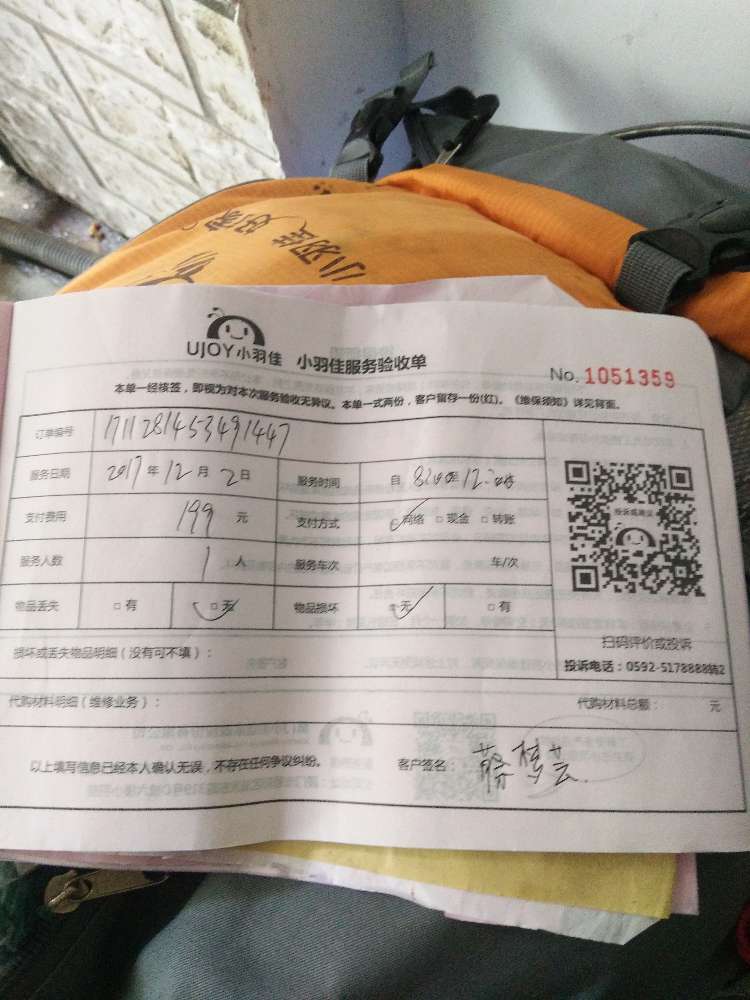 小羽佳
UJOY小羽佳 小羽佳服务验收单
No. 1051359
本单一经核签，即视为对本次服务验收无异议。本单一式两份，客户留存一份(红)。《维保须知》详见背面。
订单编号 1711281453491447
服务日期 2017年12月2日 服务时间 自 8:00至12:00
支付费用 199 元 支付方式 网络 □现金 □转账
服务人数 1 人 服务车次 车/次
物品丢失 □有 □无 物品损坏 □无 □有
投诉或建议
扫码评价或投诉
投诉电话：0592-5178888转2
损坏或丢失物品明细（没有可不填）：
代购材料明细（维修业务）： 代购材料总额： 元
以上填写信息已经本人确认无误，不存在任何争议纠纷。 客户签名：